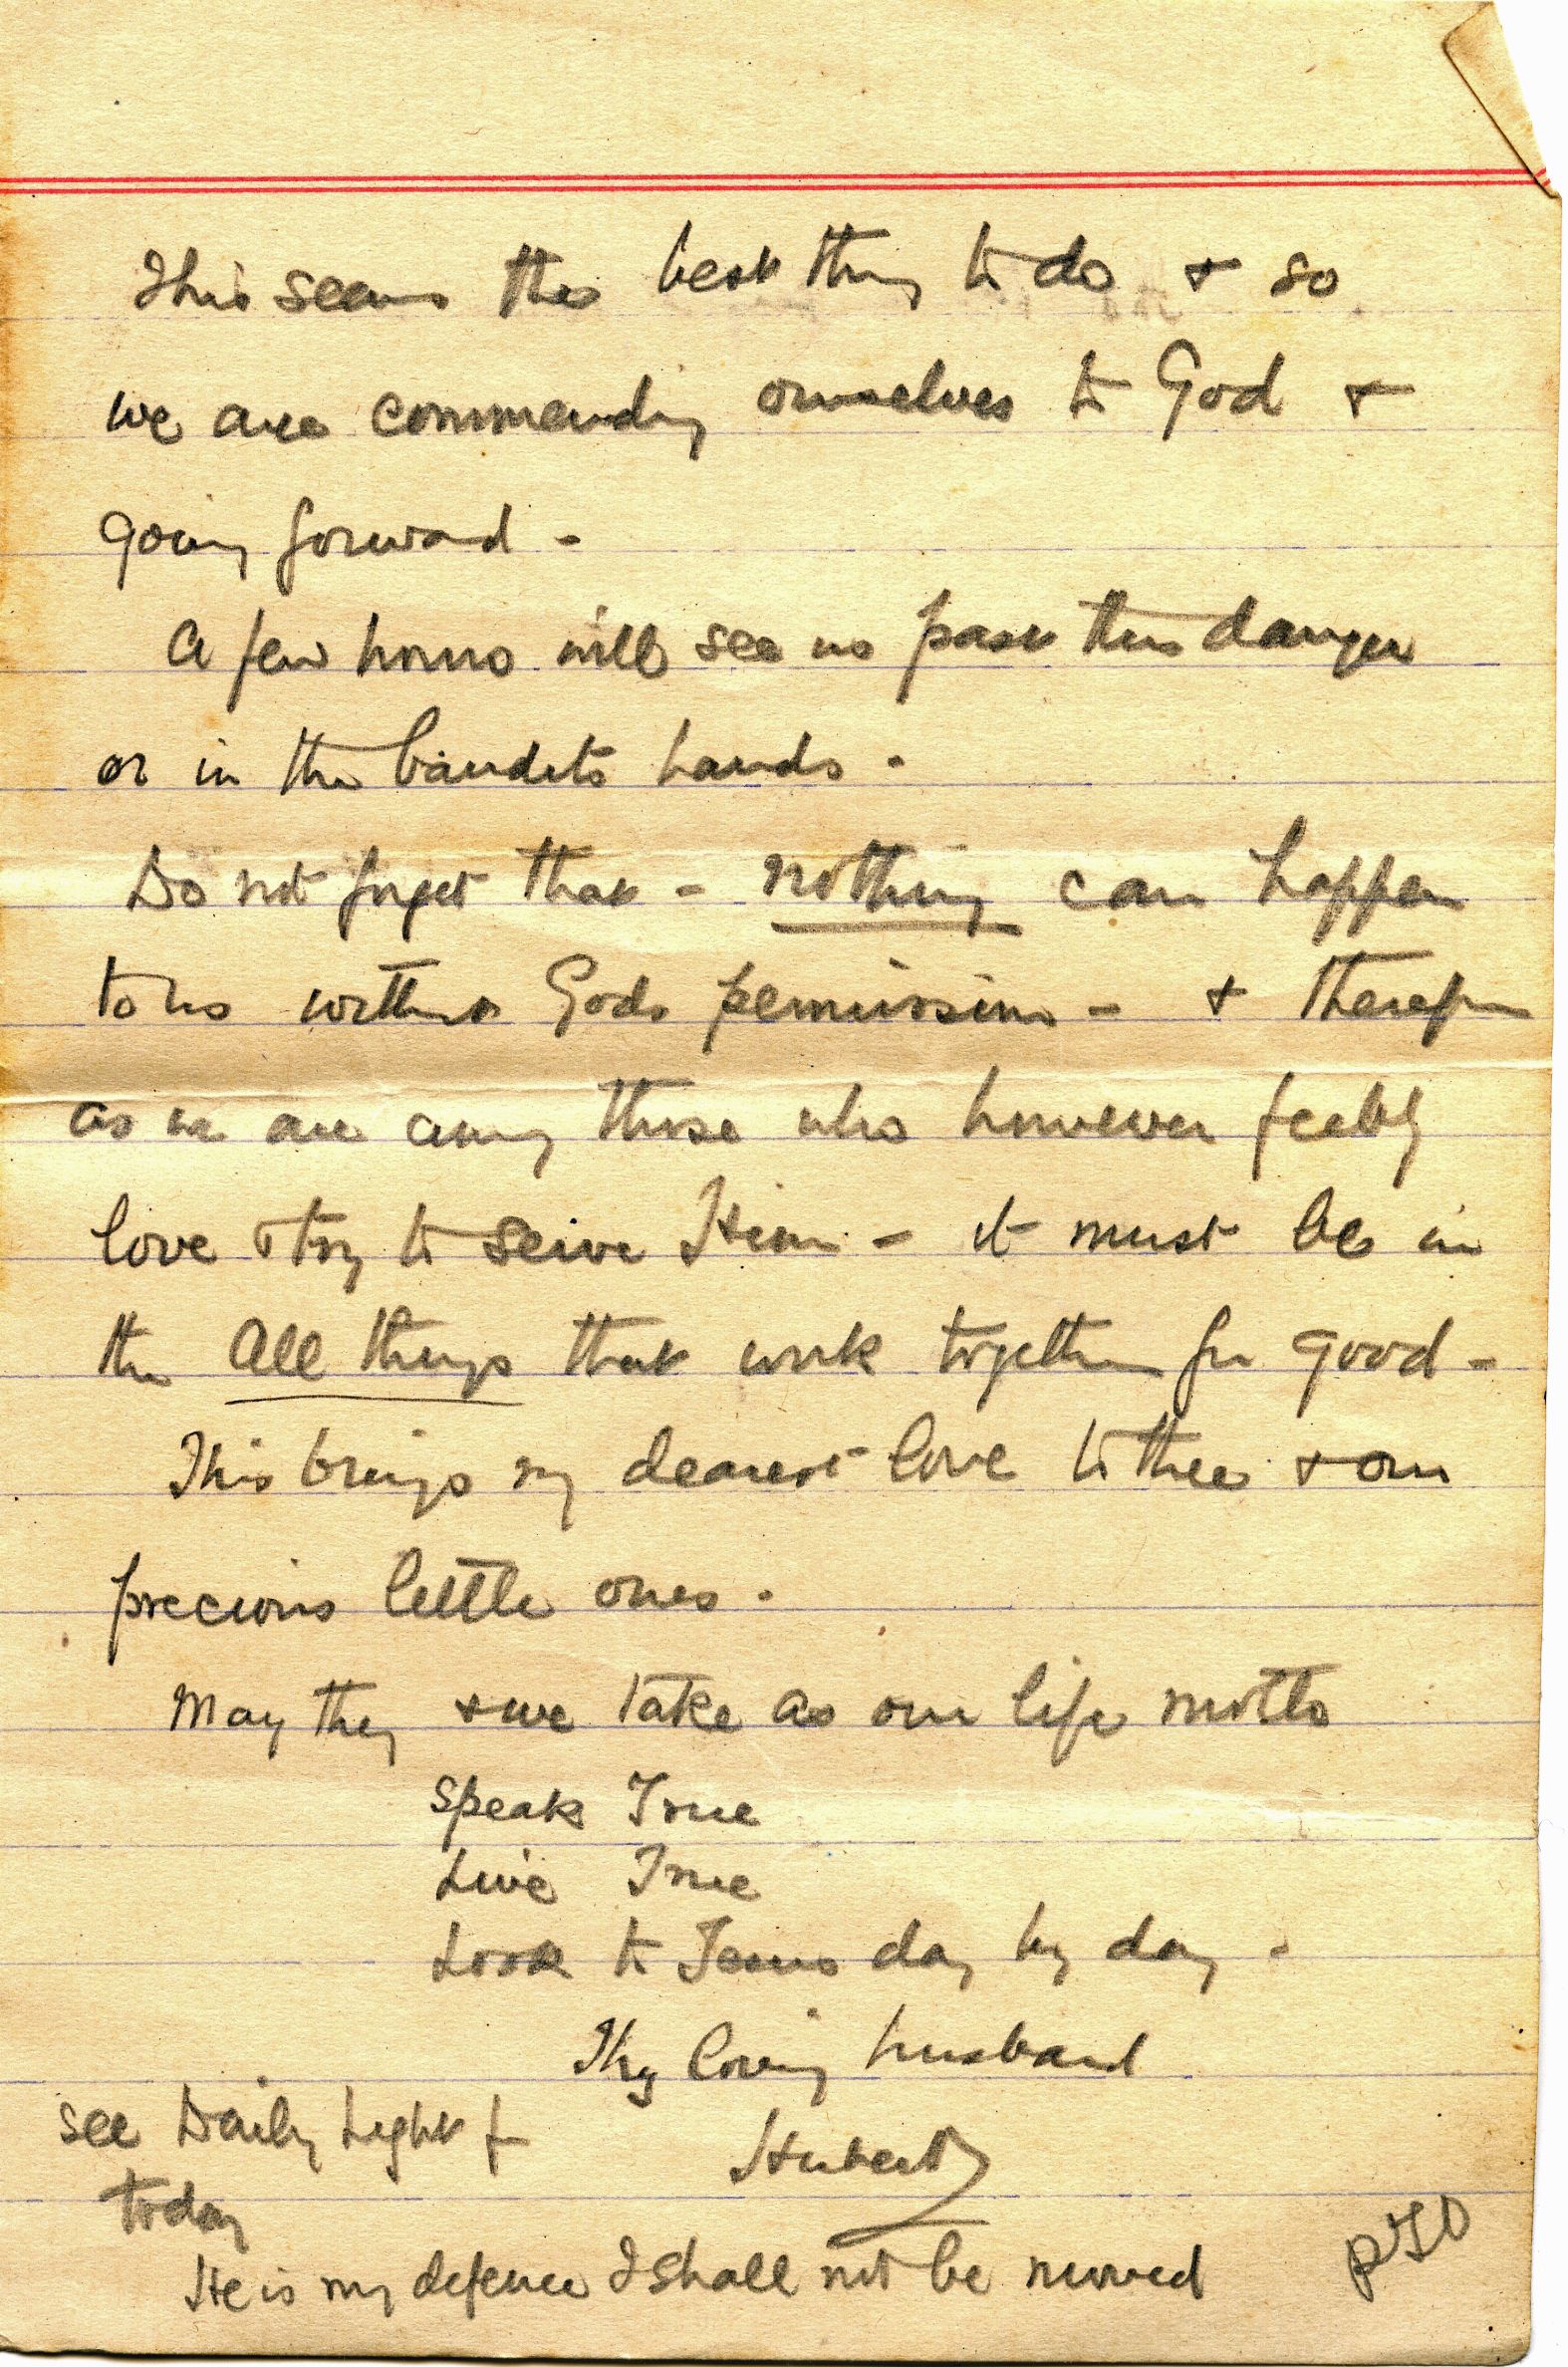 This seems the best thing to do & so
we are commending ourselves to God &
going forward -
A few hours will see us past this danger
or in the bandits hands.
Do not forget that - nothing can happen
to us without Gods permission - & therefore
as we are among those who however feebly
love & try to serve Him - it must be in
the All things that work together for good -
This brings my dearest love to thee & our
precious little ones.
May they & we take as our life motto
Speak True
Live True
Look to Jesus day by day.
Thy loving husband
Hubert
See Daily Light for
today
He is my defence I shall not be moved
PTO